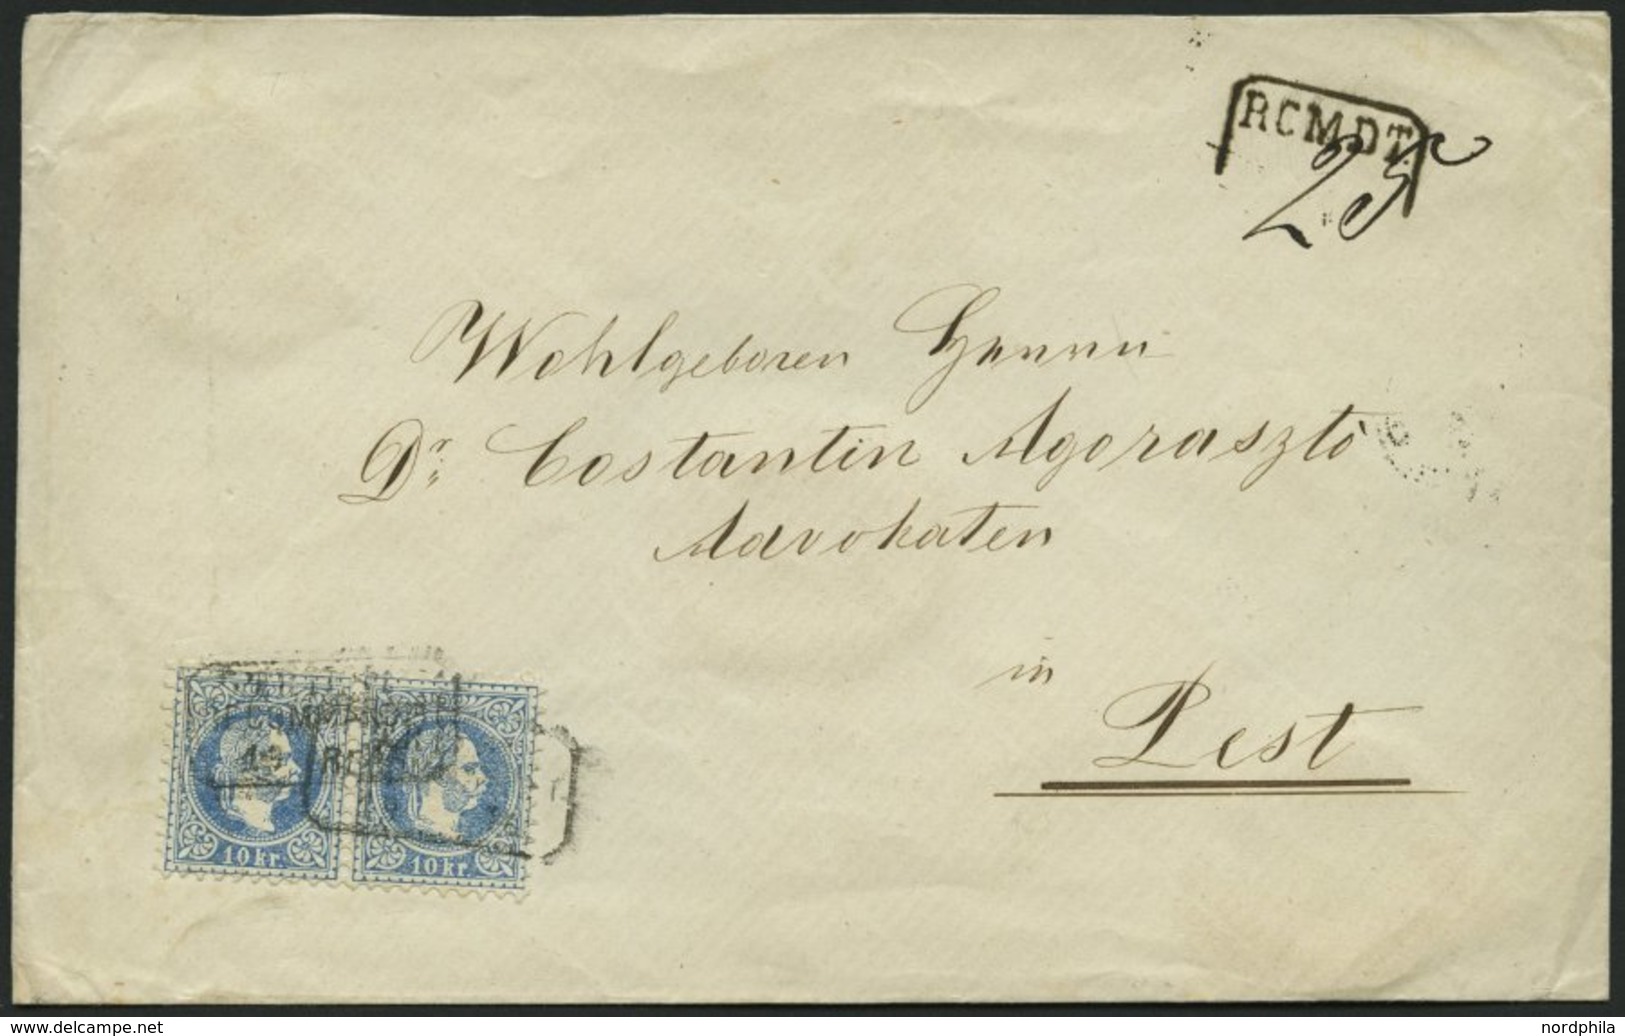 RCMDT.
25
Wohlgeboren Herrn
Dr. Costantin Agorasztò
Advokaten
in
Pest
10 kr. 10 kr.
www.delcampe.net
nordphila